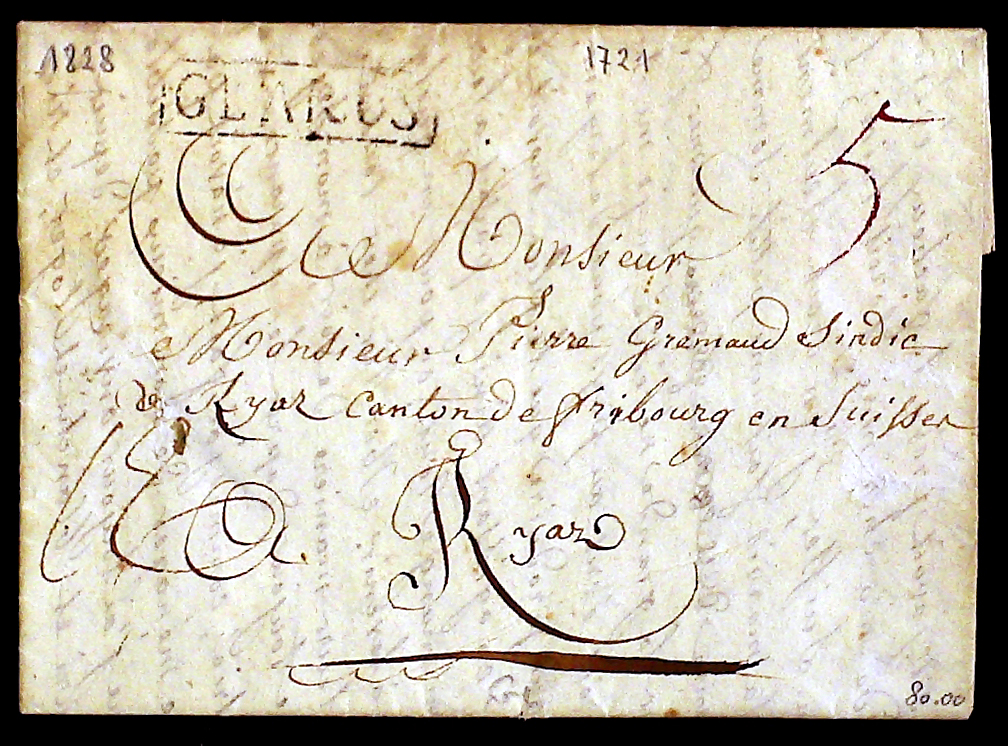 1828 1721
GLARUS
5
Monsieur
Monsieur Pierre Gremaud Sindic
de Ryaz Canton de fribourg en Suisse
A Ryaz
80.00